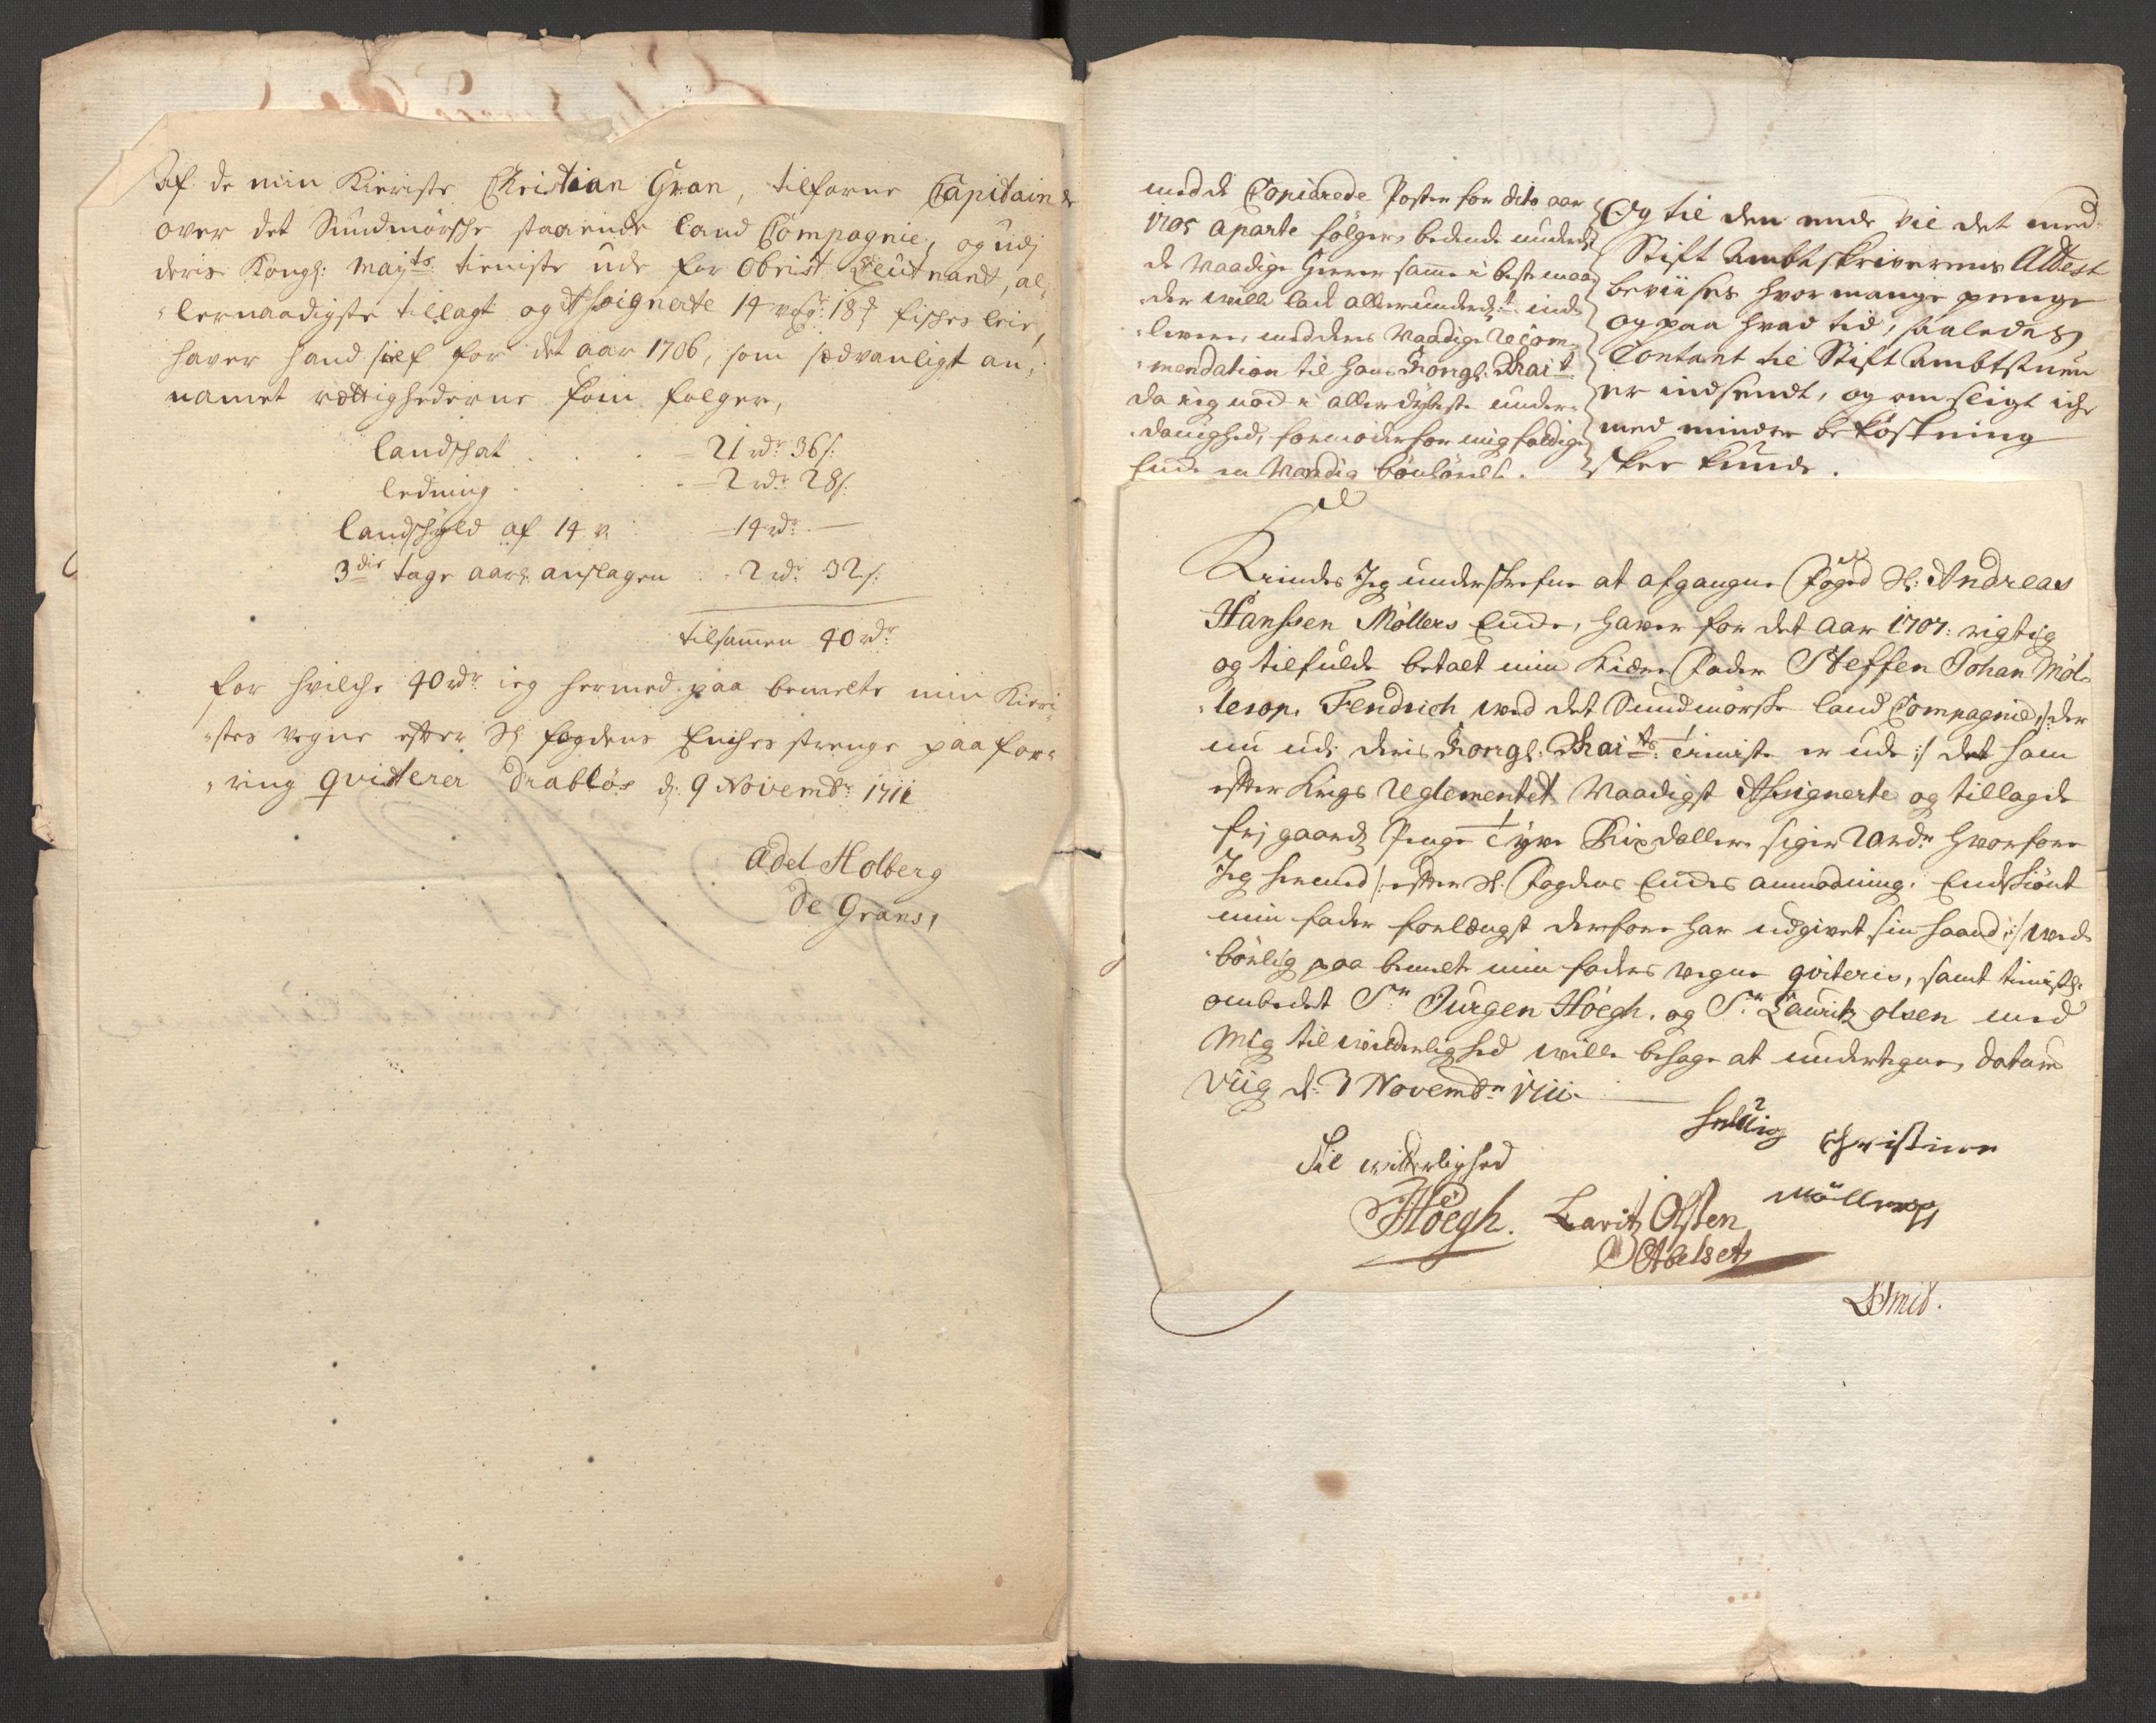 Af de min Kieriste Christian Gran, tilforne Capitain
over det Sundmörsche staaende land Compagnie, og udj
deris Kongl: Mayts: tieniste ude for Obrist Leutnandt, al-
lernaadigste tillagt og Assignerte 14 18 fiskes leie,
haver hand sielf for det aar 1706, som sædvanligt an-
namet rættighederne som folger,
landschat - 21 rdr 36 s:
ledning - 2 rdr 28 s:
landschyld af 14 v - 14 rdr -
3die tage aarl: anslagen - 2 rdr 32 s:
tilsamen 40 rdr
for hvilche 40 rdr ieg hermed paa bemelte min Kieri-
stes vegne efter Sl fogdens Enches strenge paafor-
ring qvitterer Drabløs d: 9 Novembr 1711
Adel Holberg
De Grans,
med de Copierede Poster for dito aar
1705 aparte følger, bedende underd:
de Naadige Herrer samme i beste maa-
der will lade allerunderd:st ind-
levere, med deres Naadige Recom-
mendation til hans Kongl: Mait
da ieg nød i allerdybeste under-
danighed, formoder for mig fattige
Encke en Naadig bönhörelse.
Og til den ende vil det med
Stift Ambtskriverens Attest
beviises hvor mange penge
og paa hvad tid, saaledes
Contant til Stift Ambtstuen
er indsendt, og om sligt iche
med mindre bekostning
skee kunde.
Kiendes Jeg underskrefne at afgangne Foged Sl: Andreas
Hanssen Möllers Encke, haver for det Aar 1707: rigtig
og tilfulde betalt min Kiære Fader Steffen Johan Möl-
lerop. Fendrich ved det Sundmörske land Compagnie /: der
nu udi deris Kongl: Maits: tieniste er ude :/ det ham
efter Krigs Reglementet Naadigst Assignerte og tillagde
frj gaards Penge Tyve Rixdallere siger 20 rdr hvorfore
Jeg hermed /: efter Sl: Fogdens Enckes anmodning, Endskiönt
min fader forlængst derfore har udgivet sin haand :/ ved-
börlig paa bemelte min faders vegne qviterer, samt tienstl:
ombedet Sr Jurgen Höegh, og Sr Lauritz olsen med
Mig til witterlighed wille behage at undertegne, datum
Viig d: 3 Novembr 1711.
Helvig Christina
Möllerop
Til witterlighed
JHöegh. Laritz Olsten
Abelset
LSmid.